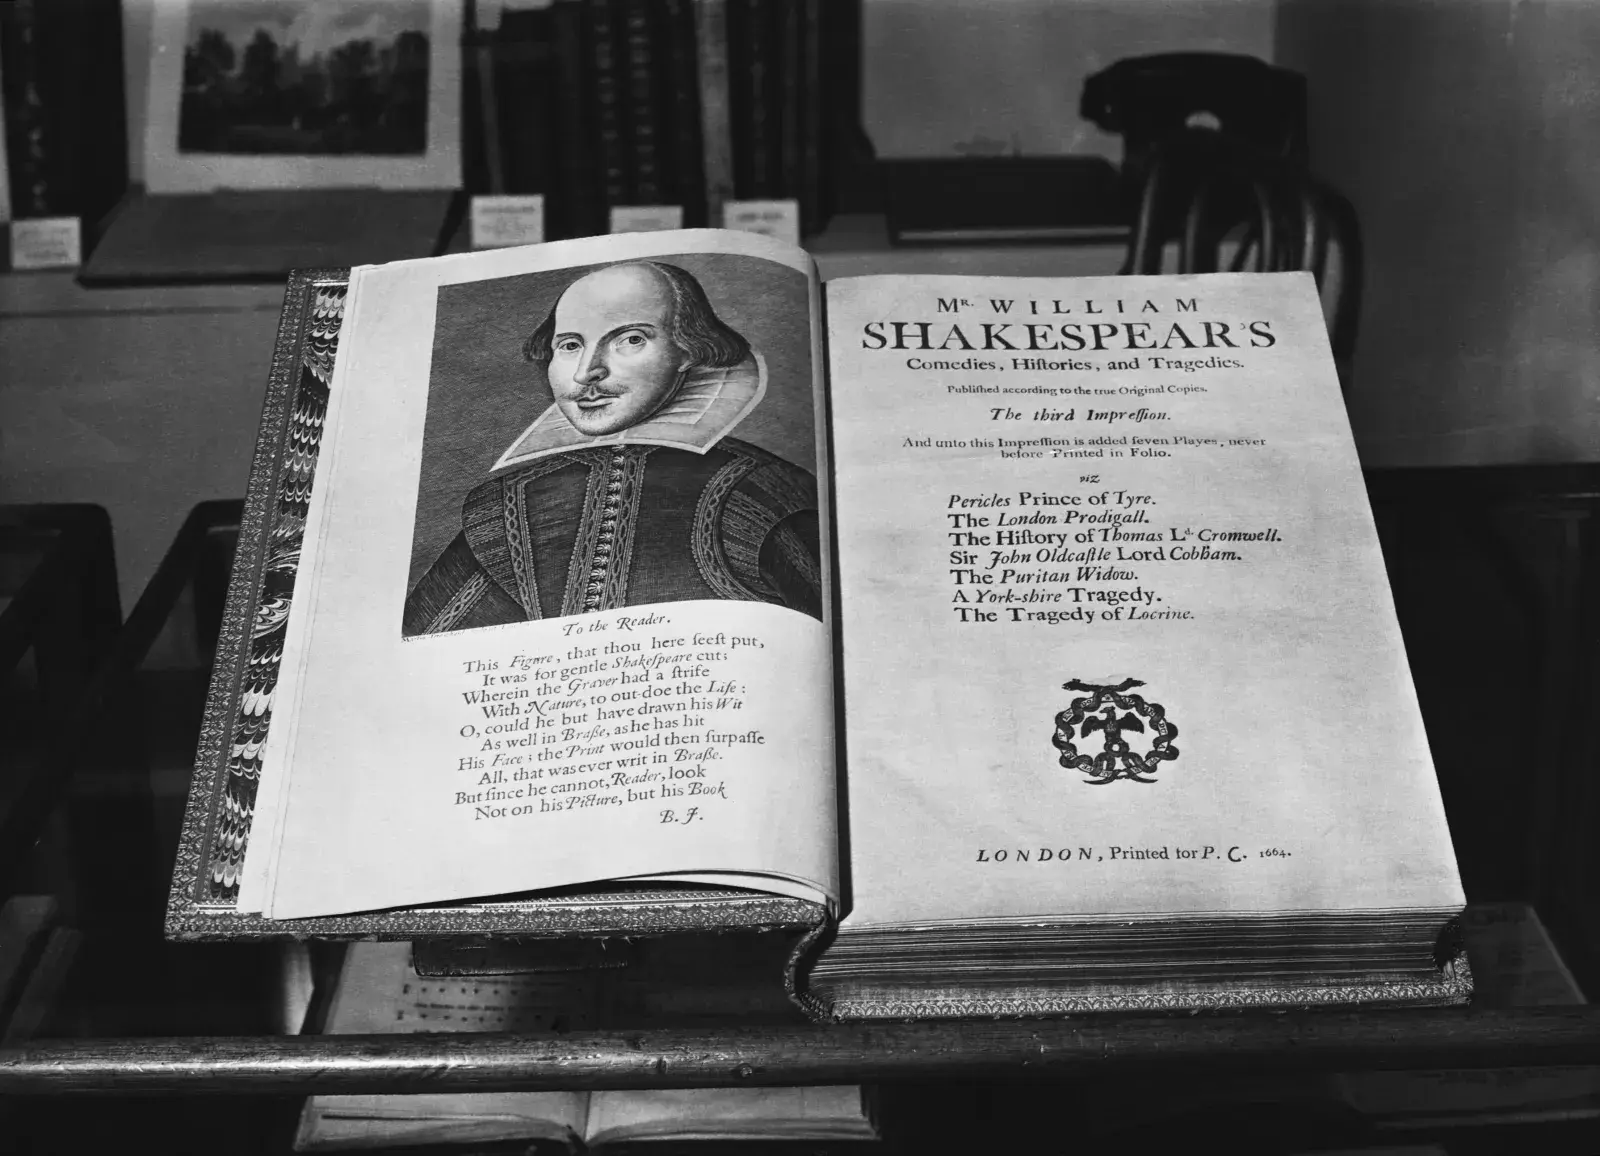 To the Reader.
This Figure, that thou here ſeeſt put,
It was for gentle Shakeſpeare cut;
Wherein the Graver had a ſtrife
With Nature, to out-doe the Life :
O, could he but have drawn his Wit
As well in Braſſe, as he has hit
His Face ; the Print would then ſurpaſſe
All, that was ever writ in Braſſe.
But ſince he cannot, Reader, look
Not on his Picture, but his Book
B. J.
Mr. WILLIAM
SHAKESPEAR'S
Comedies, Hiſtories, and Tragedies.
Publiſhed according to the true Original Copies.
The third Impreſſion.
And unto this Impreſſion is added ſeven Playes, never
before Printed in Folio.
viz
Pericles Prince of Tyre.
The London Prodigall.
The Hiſtory of Thomas Ld. Cromwell.
Sir John Oldcaſtle Lord Cobham.
The Puritan Widow.
A York-shire Tragedy.
The Tragedy of Locrine.
LONDON, Printed for P. C. 1664.